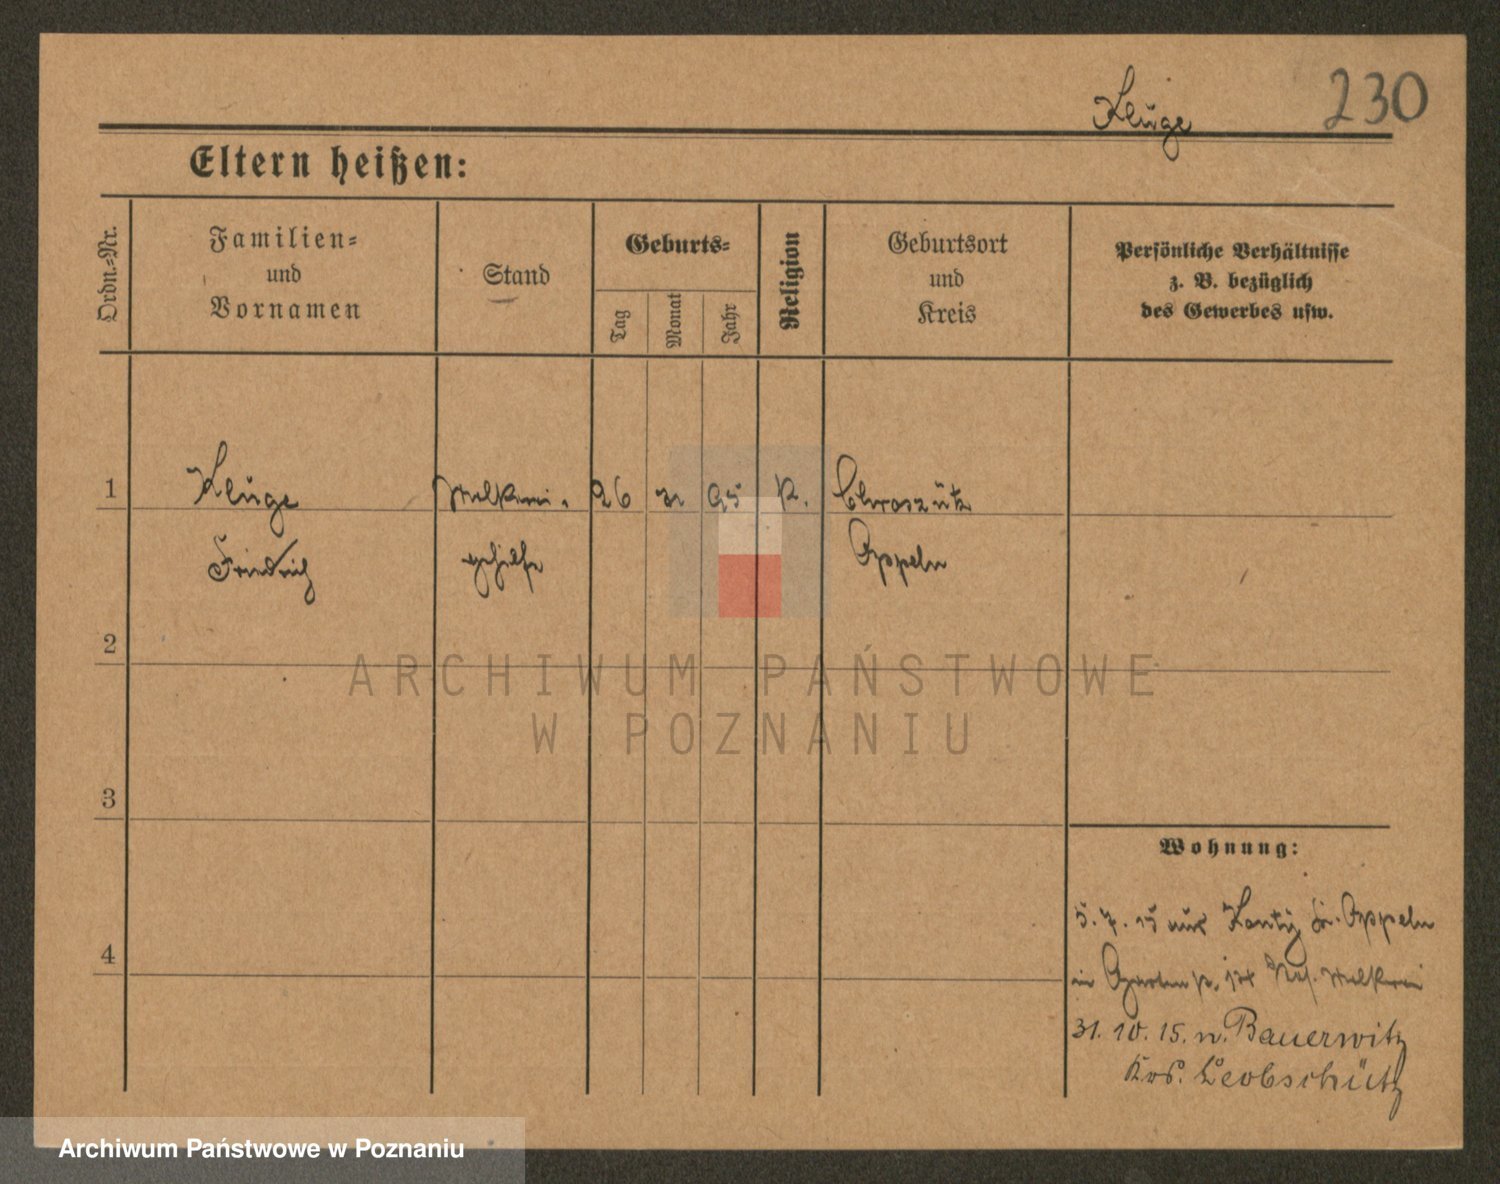 Kluge 230
Eltern heißen:
Ordn.-Nr.
Familien-
und
Vornamen
Stand
Geburts-
Tag
Monat
Jahr
Religion
Geburtsort
und
Kreis
Persönliche Verhältnisse
z. B. bezüglich
des Gewerbes usw.
1 Kluge Molkerei- 26 95 k. Chrosczütz
Friedrich gehilfe Oppeln
2
ARCHIWUM PAŃSTWOWE
W POZNANIU
3
Wohnung:
5. 7. 15 aus Oppeln
4
in Molkerei
31. 10. 15. n. Bauerwitz
Krs. Leobschütz
Archiwum Państwowe w Poznaniu